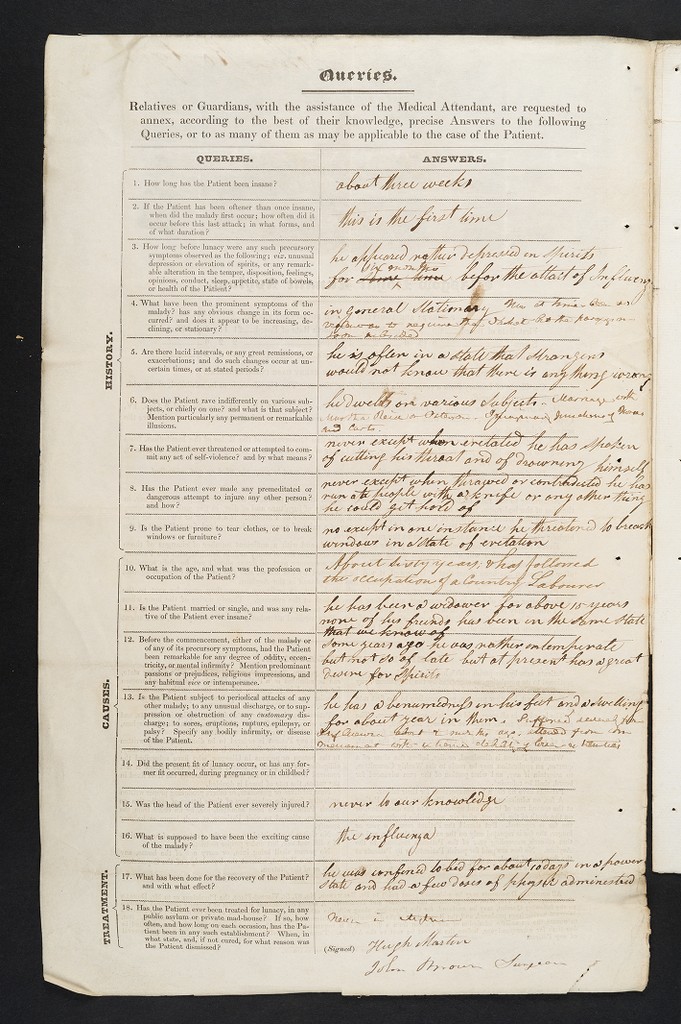 Queries.
Relatives or Guardians, with the assistance of the Medical Attendant, are requested to
annex, according to the best of their knowledge, precise Answers to the following
Queries, or to as many of them as may be applicable to the case of the Patient.
QUERIES.
ANSWERS.
HISTORY.
1. How long has the Patient been insane?
about three weeks
2. If the Patient has been oftener than once insane,
when did the malady first occur; how often did it
occur before this last attack; in what forms, and
of what duration?
this is the first time
3. How long before lunacy were any such precursory
symptoms observed as the following; viz. unusual
depression or elevation of spirits, or any remark-
able alteration in the temper, disposition, feelings,
opinions, conduct, sleep, appetite, state of bowels,
or health of the Patient?
he appeared rather depressed in spirits
six months
for some time before the attact of Influenz
4. What have been the prominent symptoms of the
malady? has any obvious change in its form oc-
curred? and does it appear to be increasing, de-
clining, or stationary?
in general Stationary
5. Are there lucid intervals, or any great remissions, or
exacerbations; and do such changes occur at un-
certain times, or at stated periods?
he is often in a state that strangers
would not know that there is any thing wrong
6. Does the Patient rave indifferently on various sub-
jects, or chiefly on one? and what is that subject?
Mention particularly any permanent or remarkable
illusions.
he dwells on various Subjects. Marriage with
and Carts.
7. Has the Patient ever threatened or attempted to com-
mit any act of self-violence? and by what means?
never except when exetated he has spoken
of cutting his throat and of drowning himself
8. Has the Patient ever made any premeditated or
dangerous attempt to injure any other person?
and how?
never except when thrawed or contradicted he has
run at people with a knife or any other thing
he could get hold of
9. Is the Patient prone to tear clothes, or to break
windows or furniture?
no except in one instance he threatened to break
windows in a state of exetation
CAUSES.
10. What is the age, and what was the profession or
occupation of the Patient?
About sixty years, & has followed
the occupation of a Country Labourer
11. Is the Patient married or single, and was any rela-
tive of the Patient ever insane?
he has been a widower for above 15 years
none of his friends has been in the Same State
that we know of
12. Before the commencement, either of the malady or
of any of its precursory symptoms, had the Patient
been remarkable for any degree of oddity, eccen-
tricity, or mental infirmity? Mention predominant
passions or prejudices, religious impressions, and
any habitual vice or intemperance.
Some years ago he was rather intemperate
but not so of late but at present has a great
desire for Spirits
13. Is the Patient subject to periodical attacks of any
other malady; to any unusual discharge, or to sup-
pression or obstruction of any customary dis-
charge; to sores, eruptions, rupture, epilepsy, or
palsy? Specify any bodily infirmity, or disease
of the Patient.
he has a benumedness in his feet and a swelling
for about year in them. Suffered
Influenza about weeks ago,
14. Did the present fit of lunacy occur, or has any for-
mer fit occurred, during pregnancy or in childbed?
15. Was the head of the Patient ever severely injured?
never to our knowledge
16. What is supposed to have been the exciting cause
of the malady?
the influenza
TREATMENT.
17. What has been done for the recovery of the Patient?
and with what effect?
he was confined to bed for about 10 days in a power
state and had a few doses of physic administed
18. Has the Patient ever been treated for lunacy, in any
public asylum or private mad-house? If so, how
often, and how long on each occasion, has the Pa-
tient been in any such establishment? When, in
what state, and, if not cured, for what reason was
the Patient dismissed?
Never in
(Signed) Hugh Martin
John Brown Surgeon